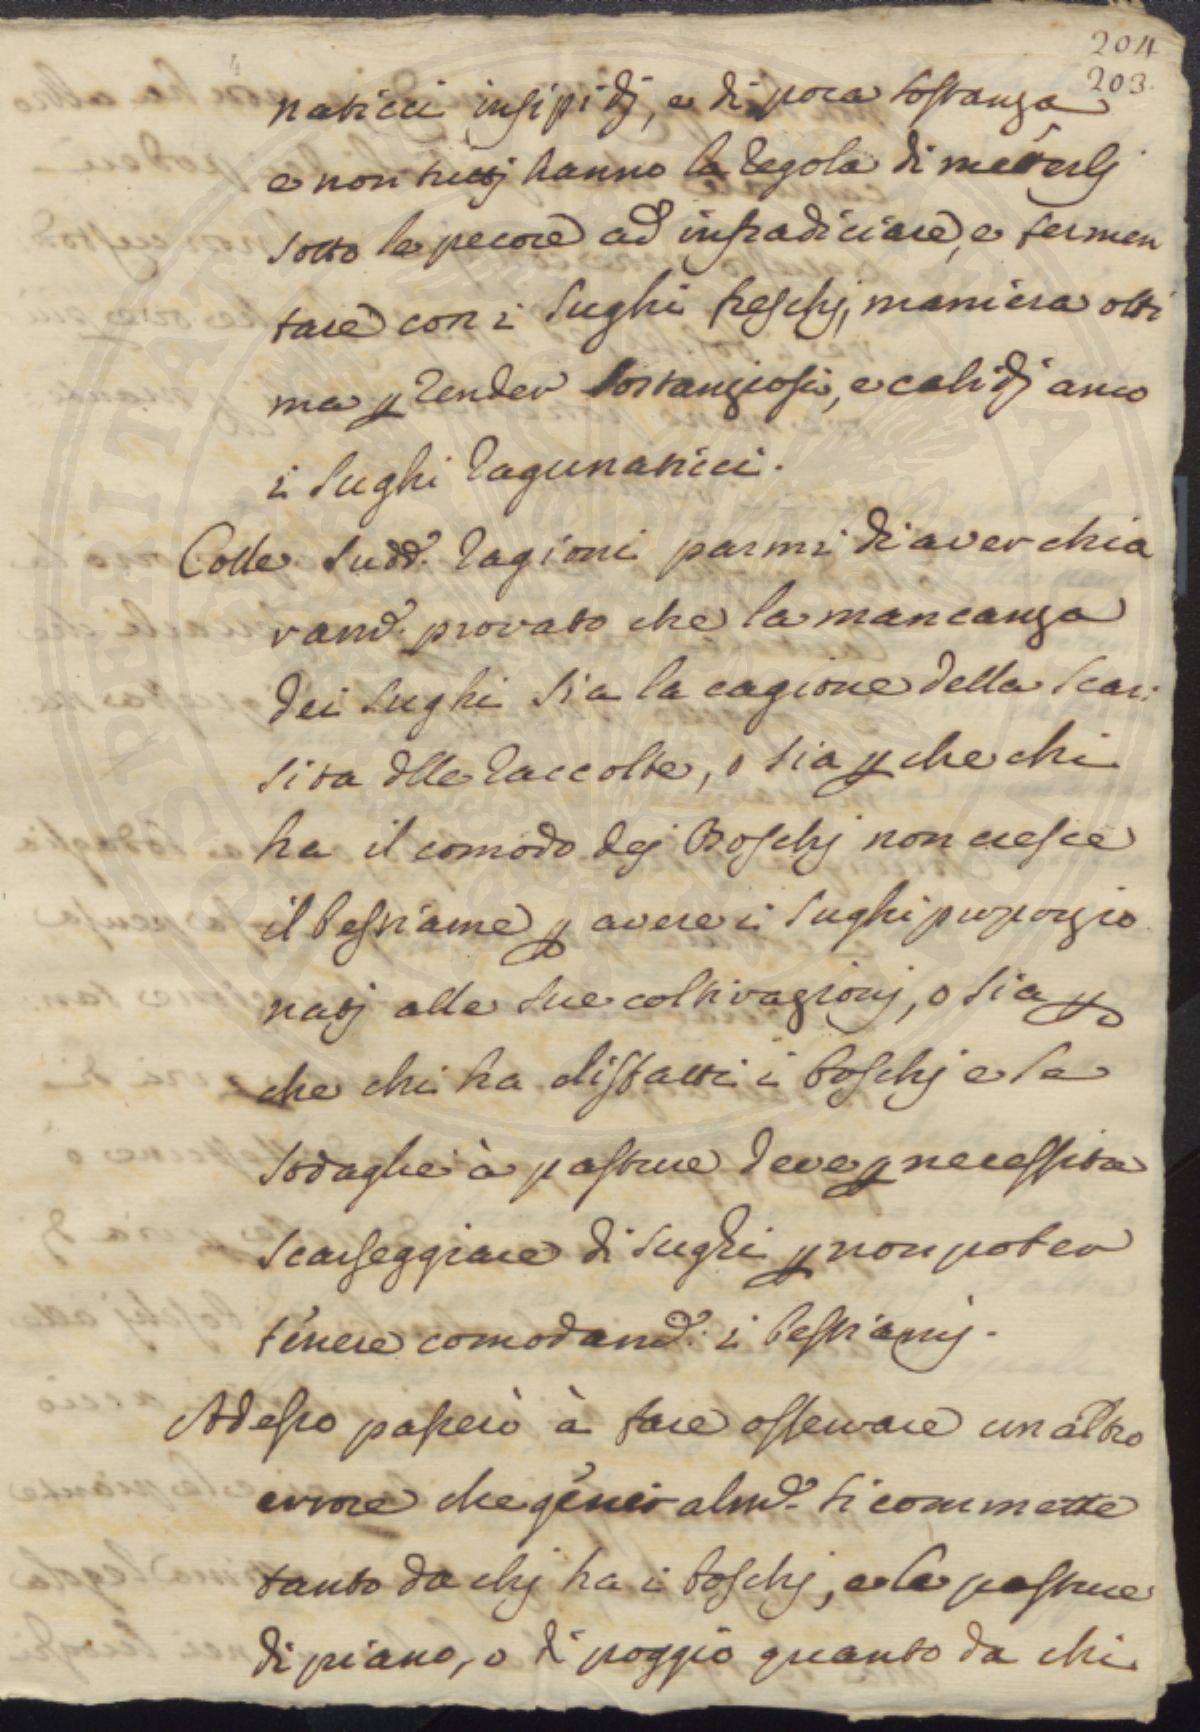 204
203.
naticci insipidj, e di poca sostanza
e non tuttj hanno la regola di metterlj
sotto le pecore ad infradiciare, e fermen
tare con i sughi freschj, maniera otti
ma p render sostanziosi, e calidj anco
i sughi ragunaticci.
Colle sudd.e ragioni parmi di aver chia
ram.e provato che la mancanza
dei sughi sia la cagione della scar:
sita dlle raccolte, o sia p che chi
ha il comodo dej Boschj non cresce
il bestiame p avere i sughi proporzio
natj alle sue coltivazionj, o sia p
che chi ha disfatti i boschj e le
sodaglie à pasture deve p necessita
scarseggiare di sughi p non poter
tenere comodam.e i bestiamj.
Adesso passerò à fare osservare un altro
errore che general.me si commette
tanto da chj ha i boschj, e le pasture
di piano, o di poggio quanto da chi